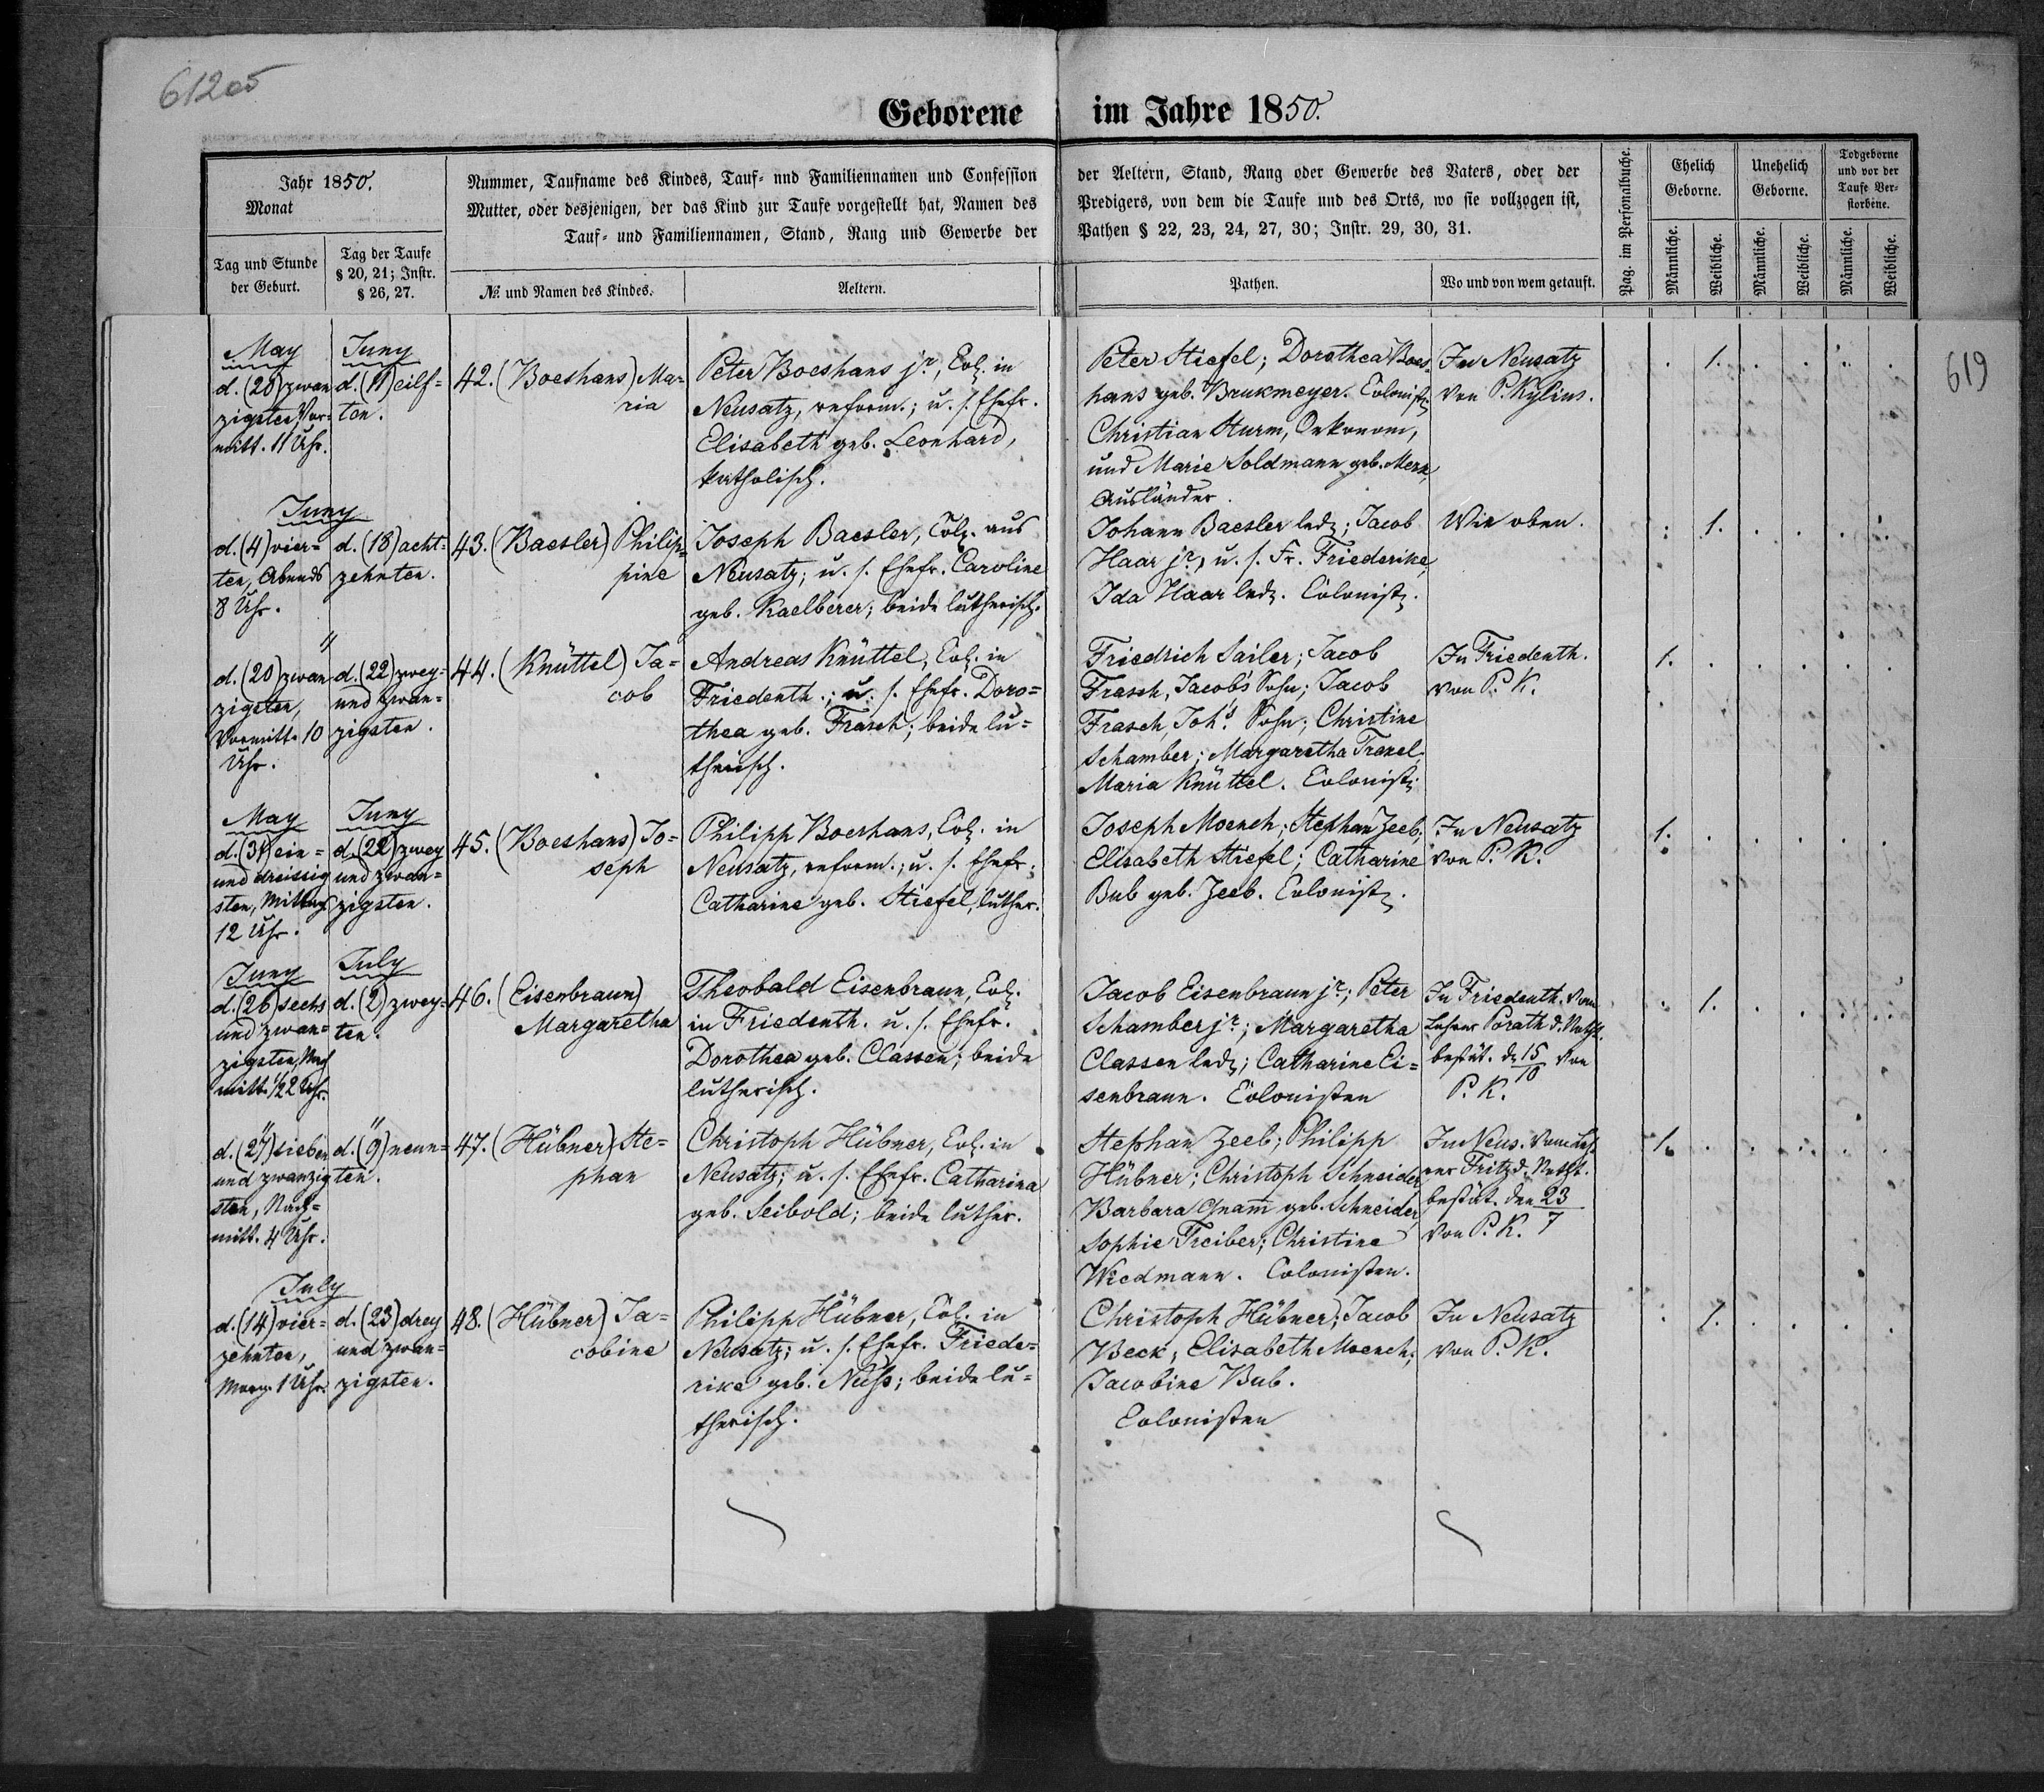 61205
Geborene im Jahre 1850.
Jahr 1850.
Monat
Tag und Stunde
der Geburt.
Tag der Taufe
§ 20, 21; Instr.
§ 26, 27.
Nummer, Taufname des Kindes, Tauf- und Familiennamen und Confession
Mutter, oder desjenigen, der das Kind zur Taufe vorgestellt hat, Namen des
Tauf- und Familiennamen, Stand, Rang und Gewerbe der
№. und Namen des Kindes.
Aeltern.
der Aeltern, Stand, Rang oder Gewerbe des Vaters, oder der
Predigers, von dem die Taufe und des Orts, wo sie vollzogen ist,
Pathen § 22, 23, 24, 27, 30; Instr. 29, 30, 31.
Pathen.
Wo und von wem getauft.
Pag. im Personalbuche.
Ehelich
Geborne.
Unehelich
Geborne.
Todgeborne
und vor der
Taufe Ver-
storbine.
Männliche.
Weibliche.
Männliche.
Weibliche.
Männliche.
Weibliche.
619
May
d. (20) zwan
zigsten, Vor-
mitt. 11 Uhr.
Juny
d. (11) eilf-
ten.
42. (Boeshans) Ma-
ria
Peter Boeshans jr, Col. in
Neusatz, reform.; u. s. Ehefr.
Elisabeth geb. Leonhard,
katholisch.
Peter Stiefel; Dorothea Boes-
hans geb. Brukmeyer. Colonist.
Christian Sturm, Oekonom,
und Marie Soldmann geb. Merz,
Ausländer.
In Neusatz
von P. Kylius.
1.
Juny
d. (4) vier-
ten, Abends
8 Uhr.
d. (18) acht-
zehnten.
43. (Baesler) Philip-
pine
Joseph Baesler, Col. aus
Neusatz; u. s. Ehefr. Caroline
geb. Kaelberer; beide lutherisch.
Johann Baesler led.; Jacob
Haar jr, u. s. Fr. Friederike,
Ida Haar led. Colonist.
Wie oben.
1.
"
d. (20) zwan
zigsten,
Vormitt. 10
Uhr.
d. (22) zwey-
und zwan-
zigsten.
44. (Knüttel) Ja-
cob
Andreas Knüttel, Col. in
Friedenth.; u. s. Ehefr. Doro-
thea geb. Frasch; beide lu-
therisch.
Friedrich Sailer; Jacob
Frasch, Jacob's Sohn; Jacob
Frasch, Joh's Sohn; Christine
Schamber; Margaretha Traxel,
Maria Knüttel. Colonist.
In Friedenth.
von P. K.
1.
May
d. (31) ein-
und dreissig
sten, Mittags
12 Uhr.
Juny
d. (22) zwey
und zwan-
zigsten.
45. (Boeshans) Jo-
seph
Philipp Boeshans, Col. in
Neusatz, reform.; u. s. Ehefr.
Catharine geb. Stiefel, luther.
Joseph Moench; Stephan Zeeb,
Elisabeth Stiefel; Catharine
Bub geb. Zeeb. Colonist.
In Neusatz
von P. K.
1.
Juny
d. (26) sechs
und zwan-
zigsten, Nach
mitt. 1/2 2 Uhr.
July
d. (2) zwey-
ten.
46. (Eisenbraun)
Margaretha
Theobald Eisenbraun, Col.
in Friedenth. u. s. Ehefr.
Dorothea geb. Classen; beide
lutherisch.
Jacob Eisenbraun jr; Peter
Schamber jr; Margaretha
Classen led.; Catharine Ei-
senbraun. Colonisten
In Friedenth. vom
Lehrer Porath d. Notht.
bestät. d. 15/10 von
P. K.
1.
"
d. (27) sieben
und zwanzig
sten, Nach-
mitt. 4 Uhr.
"
d. (9) neun-
ten.
47. (Hübner) Ste-
phan
Christoph Hübner, Col. in
Neusatz; u. s. Ehefr. Catharina
geb. Seibold; beide luther.
Stephan Zeeb; Philipp
Hübner; Christoph Schneider
Barbara Gnam geb. Schneider,
Sophie Treiber; Christine
Wiedmann. Colonisten.
In Neus. vom Leh-
rer Fritz d. Notht.
bestät. den 23/7
von P. K.
1.
July
d. (14) vier-
zehnten,
Morg. 1 Uhr.
d. (23) drey
und zwan-
zigsten.
48. (Hübner) Ja-
cobine
Philipp Hübner, Col. in
Neusatz; u. s. Ehefr. Friede-
rike geb. Nuss; beide lu-
therisch.
Christoph Hübner; Jacob
Beck; Elisabeth Moench;
Jacobine Bub.
Colonisten
In Neusatz
von P. K.
1.